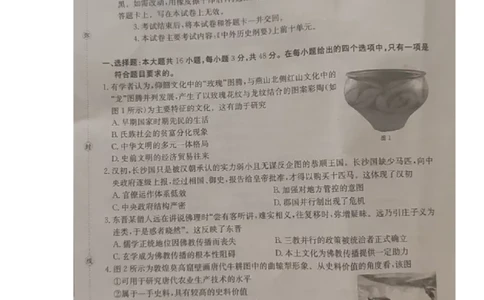 答题卡上。写在本试卷上无效。
3.考试结束后,将本试卷和答题卡一并交回。
4.本试卷主要考试内容:《中外历史纲要》上前十单元。
一、选择题:本大题共16小题,每小题3分,共48分。在每小题给出的四个选项中,只有一项是
符合题目要求的。
1.有学者认为,仰韶文化中的“玫瑰”图腾,与燕山北侧红山文化中的
“龙”图腾并列发展,产生了以玫瑰花纹与龙纹结合的图案彩陶(如
图1所示)为主要特征的文化。这有助于研究
A.早期国家时期先民的生活
B.氏族社会的贫富分化现象
C.中华文明的多元一体格局
D.史前文明的经济贸易往来
图1
2.汉初,长沙国只是被汉朝承认的实力弱小且无谋反企图的恭顺王国。长沙国缺少马匹,向中
央政府逐级上报,经过相国、御史,报告给皇帝批准,才得以购买十匹马。这体现了汉初
A.官僚运作体系低效
B.加强对地方管控的意图
C.中央政府结构严密
D.郡国并行制出现了危机
3.东晋某僧人远在讲说佛理时“尝有客听讲,难实相义,往复移时,弥增疑昧。远乃引庄子义为
连类,于是惑者晓然”。这反映了东晋
A.儒学正统地位因佛教传播而丧失
B.三教并行的政策被统治者正式确立
C.玄学成为佛教传播的根本性阻碍
D.本土文化为佛教传播提供一定助力
4.图2所示为敦煌莫高窟壁画唐代牛耕图中的曲辕犁形象。从史料价值的角度看,该图
①可用于研究唐代农业生产技术的水平
②属于一手史料,具有较高的史料价值
封
线